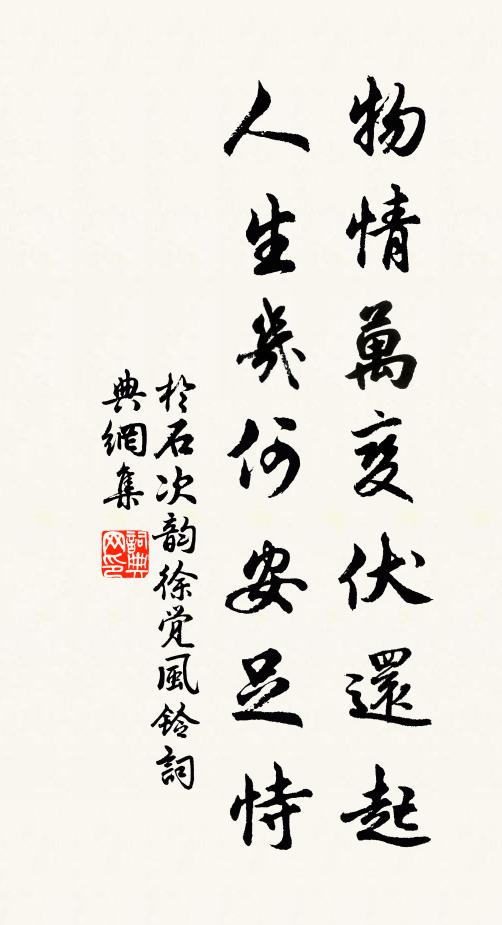 物情萬变伏還起
人生幾何安足恃
於石次韵徐觉風鈴詞
典網集
詞典网印